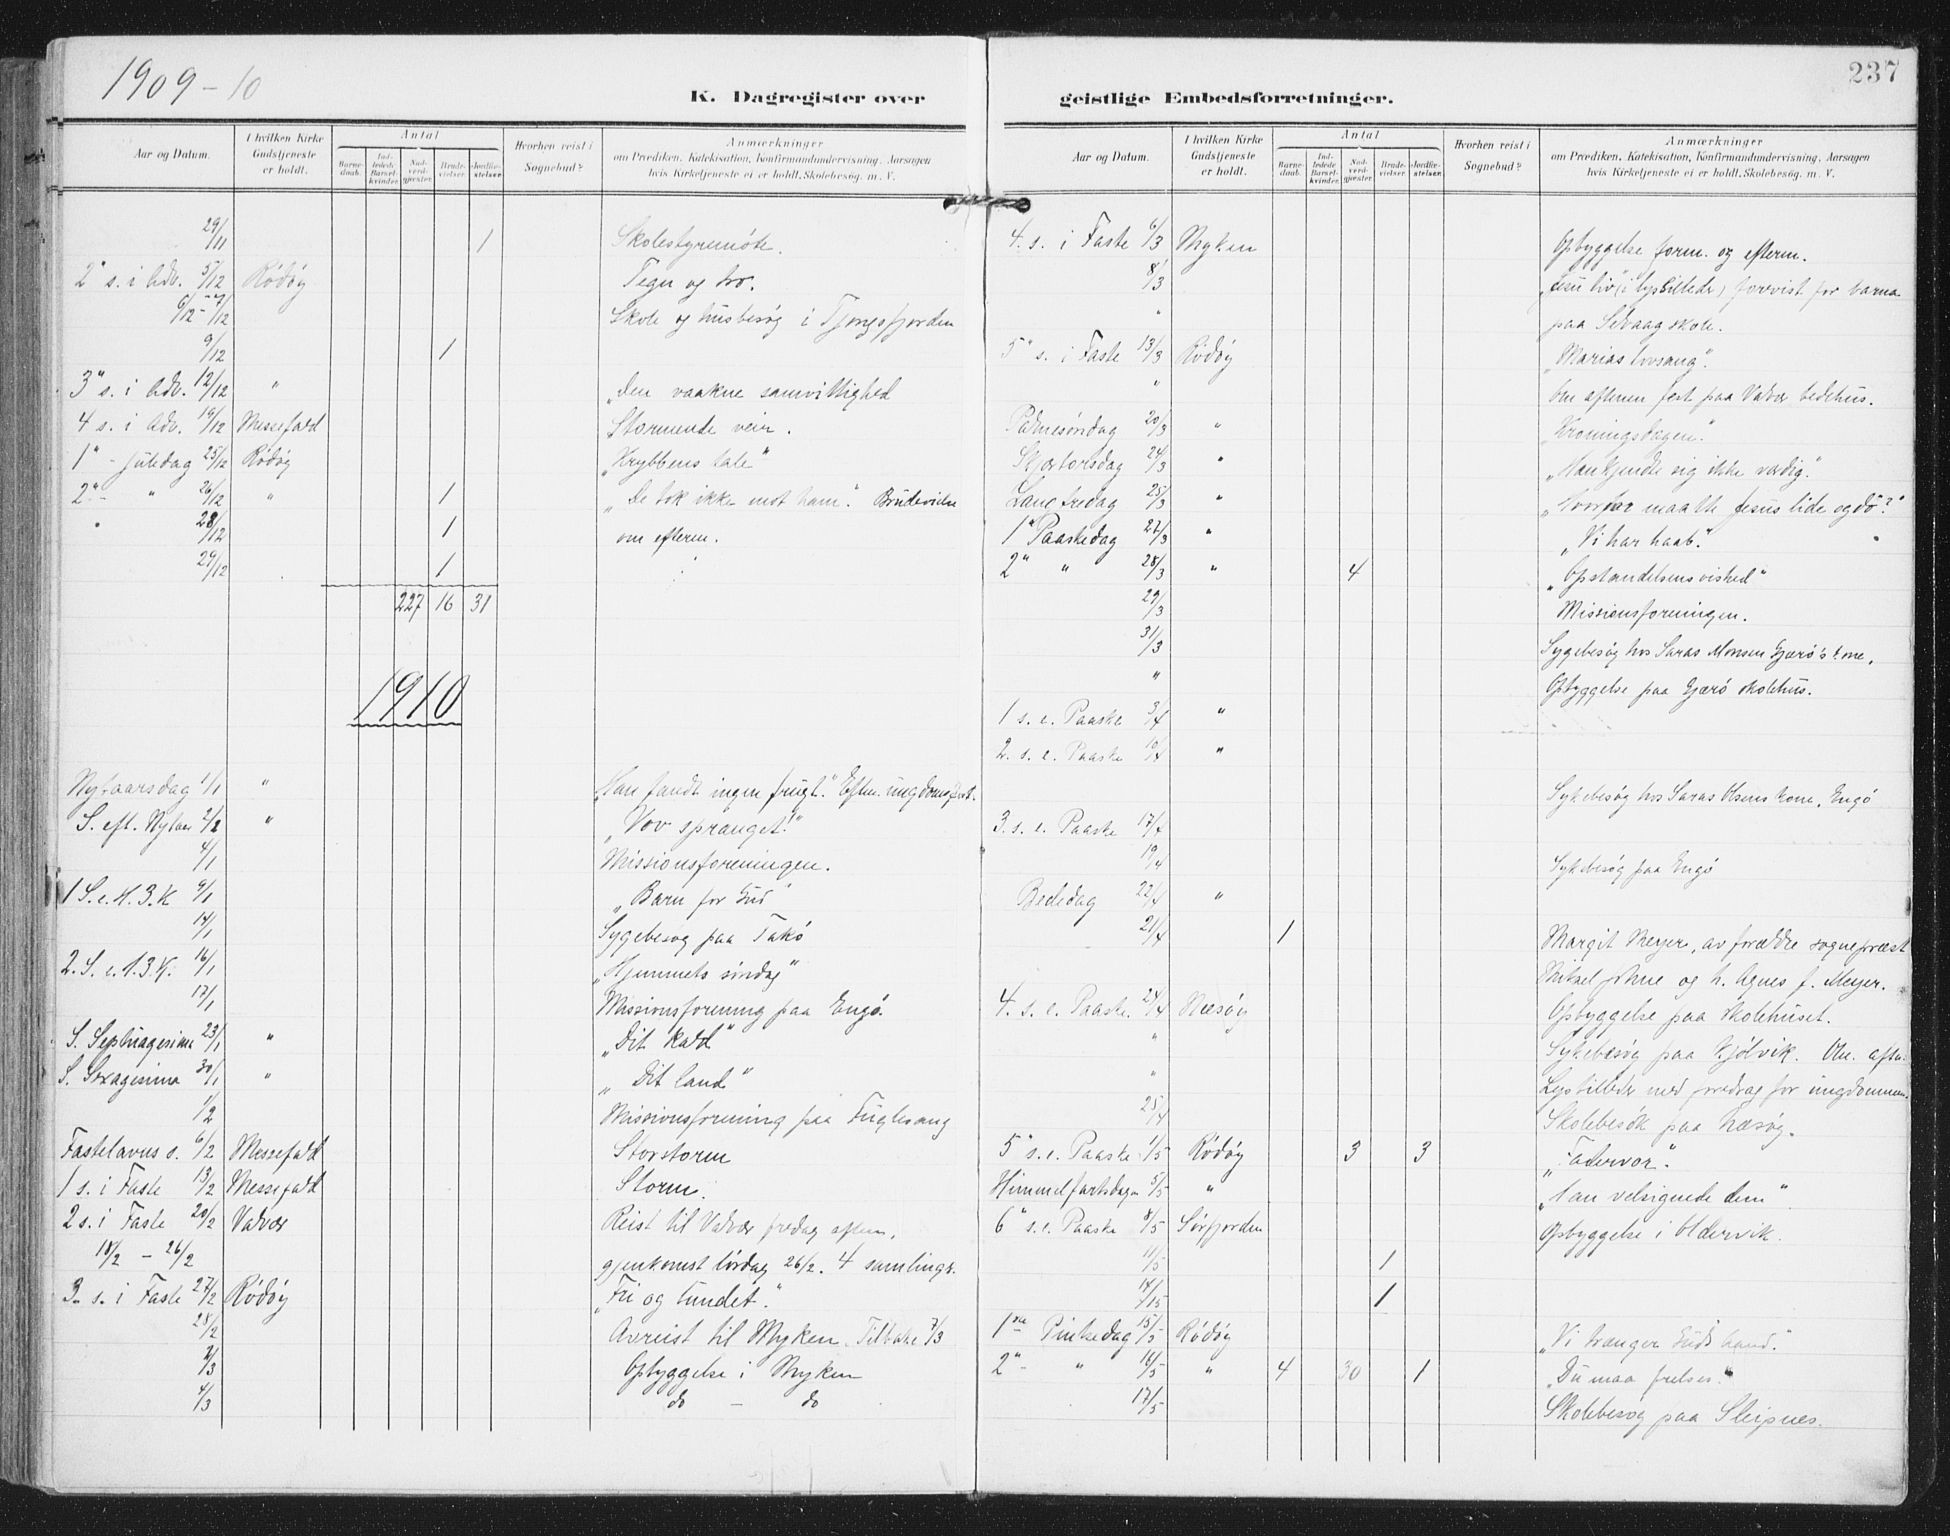 1909-10
K. Dagregister over
Aar og Datum. I hvilken Kirke Gudstjeneste er holdt. Antal Barne-daab. Ind-ledede Barsel-kvinder. Nad-verd-gjester. Brude-vielser. Jordfæ-stelser. Hvorhen reist i Sognebud? Anmærkninger om Prædiken, Katekisation, Konfirmandundervisning, Aarsagen hvis Kirketjeneste ei er holdt, Skolebesøg, m. V.
29/11 1 Skolestyremøte.
2" s. i Adv. 5/12 Rödöy Tegn og tro.
6/12 - 7/12 Skole og husbesøg i Tjongsfjorden
9/12 1
3" s. i Adv. 12/12 " "Den vaakne samvittighed
4 s. i Adv. 19/12 Messefald Stormende veir.
1" - juledag 25/12 Rödöy "Krybbens tale"
2" - " 26/12 " 1 "De tok ikke mot ham". Brudevielse
" 28/12 1 om efterm.
29/12 1
227 16 31
1910
Nytaarsdag 1/1 " "Han fandt ingen frugt." Efterm. ungdoms
S. eft. Nytaar 2/2 " "Vov spranget!"
4/1 Missionsforeningen.
1 S. e. H. 3. K 9/1 "Barn for Gud"
14/1 Sygebesøg paa
2. S. e. H. 3. K. 16/1 "Hjemmets søndag"
17/1 Missionsforening paa Engø.
S. Septuagesima 23/1 " "Dit kald"
S. Sexagesima 30/1 " "Dit land"
1/2 Missionsforening paa Fuglesang
Fastelavns s. 6/2 Messefald Storstorm
1 s. i Faste 13/2 Messefald Storm.
2 s. i Faste 20/2 Valvær Reist til Valvær fredag aften,
18/2 - 26/2 gjenkomst lördag 26/2. 4 samlinger.
3. s. i Faste 27/2 Rödöy "Fri og bundet."
28/2 Avreist til Myken. Tilbake 7/3
2/3 Opbyggelse i Myken
4/3 do - do
237
geistlige Embedsforretninger.
Aar og Datum. I hvilken Kirke Gudstjeneste er holdt. Antal Barne-daab. Ind-ledede Barsel-kvinder. Nad-verd-gjester. Brude-vielser. Jordfæ-stelser. Hvorhen reist i Sognebud? Anmærkninger om Prædiken, Katekisation, Konfirmandundervisning, Aarsagen hvis Kirketjeneste ei er holdt, Skolebesøg, m. V.
4. s. i Faste 6/3 Myken Opbyggelse form. og efterm.
8/3 "Jesu liv" (i lysbilleder) forevist for barna
" paa Selvaag skole.
5" s. i Faste 13/3 Rödöy "Marias lovsang".
" Om aftenen fest paa Valvær bedehus.
Palmesöndag 20/3 " "Kroningsdagen."
Skjærtorsdag 24/3 " "Han kjendte sig ikke værdig."
Langfredag 25/3 " "Hvorfor maatte Jesus lide og dö?"
1" Paaskedag 27/3 " "Vi har haab."
2" " 28/3 " 4 "Opstandelsens vished"
29/3 Missionsforeningen.
31/3 Sygebesøg hos Saras Monsen Gjærø's kone.
" Opbyggelse paa Gjærö skolehus.
1 s. e. Paaske 3/4 "
2. s. e. Paaske 10/4 "
Sykebesøg hos Saras Olsens kone, Engö
3. s. e. Paaske 17/4
19/4 Sykebesøg paa Engö
Bededag 22/4 "
21/4 1 Margit Meyer, av forældre sogneprest
og h. Agnes f. Meyer.
4. s. e. Paaske. 24/4 Næsöy Opbyggelse paa Skolehuset.
" Sykebesøg paa Kjölvik. Om aften
" Lysbilleder med foredrag for ungdommen.
25/4 Skolebesök paa Næsöy.
5" s. e. Paaske 1/5 Rödöy 3 3 "Fadervor".
Himmelfartsdagen 5/5 " "Han velsignede dem"
6" s. e. Paaske 8/5 Sörfjorden Opbyggelse i Oldervik.
11/5 1
14/5 1
1ste Pinsedag 15/5 Rödöy "Vi trænger Guds haand."
2" - " 16/5 " 4 30 1 "Du maa frelses"
17/5 Skolebesøg paa Sleipnes.